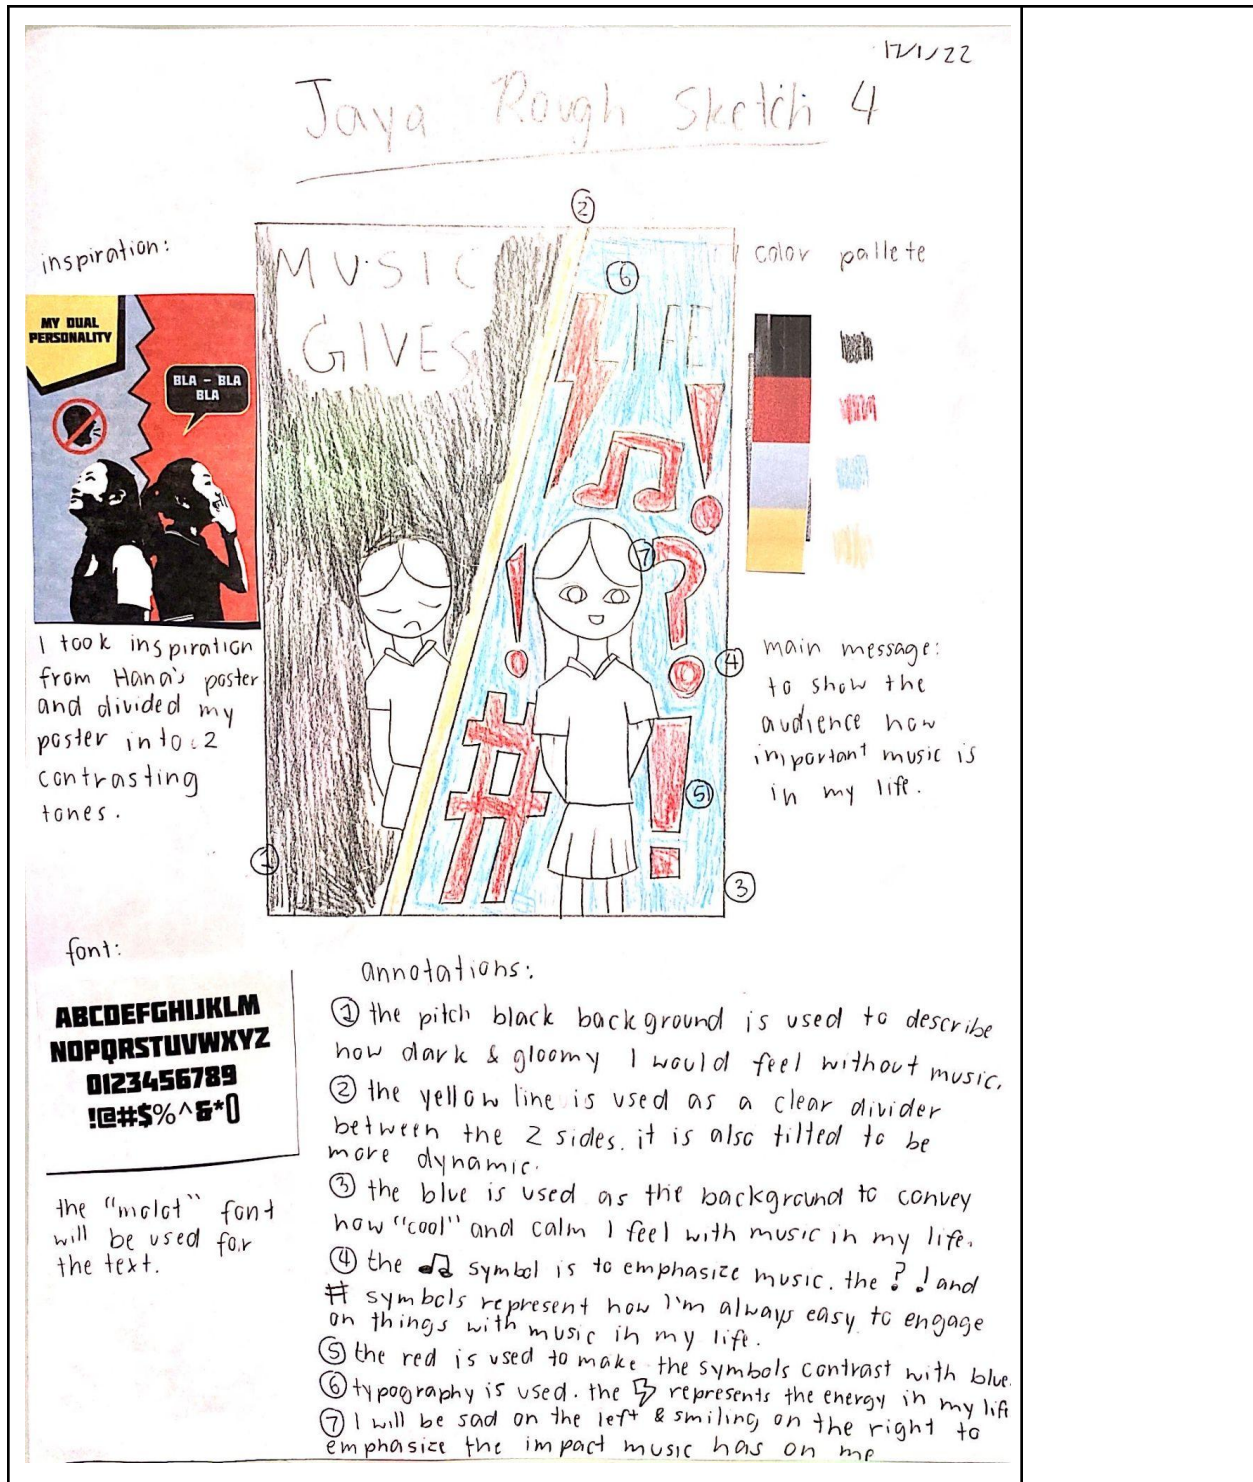 17/1/22
Jaya Rough Sketch 4
inspiration:
MY DUAL
PERSONALITY
BLA - BLA
BLA
I took inspiration
from Hana's poster
and divided my
poster into 2
contrasting
tones.
2
MUSIC
GIVES
6
LIFE
7
4
5
1
3
color pallete
main message:
to show the
audience how
important music is
in my life.
font:
ABCDEFGHIJKLM
NOPQRSTUVWXYZ
0123456789
!@#$%^&*()
the "molot" font
will be used for
the text.
annotations:
① the pitch black background is used to describe
how dark & gloomy I would feel without music.
② the yellow line is used as a clear divider
between the 2 sides. it is also tilted to be
more dynamic.
③ the blue is used as the background to convey
how "cool" and calm I feel with music in my life.
④ the ♫ symbol is to emphasize music. the ? ! and
# symbols represent how I'm always easy to engage
on things with music in my life.
⑤ the red is used to make the symbols contrast with blue.
⑥ typography is used. the ϟ represents the energy in my life
⑦ I will be sad on the left & smiling on the right to
emphasize the impact music has on me